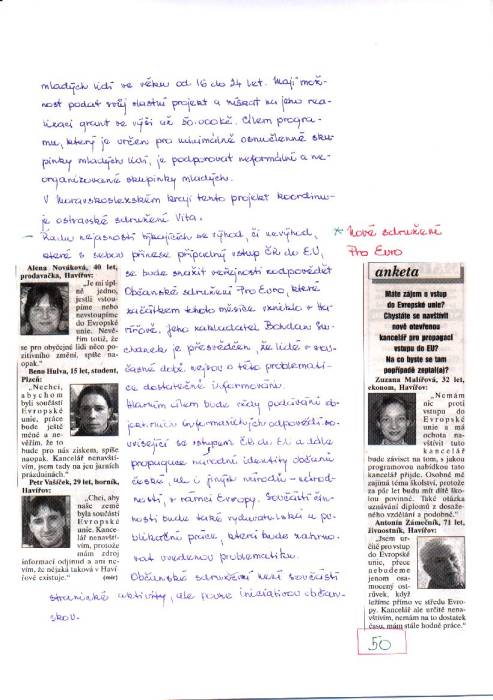 mladých lidí ve věku od 16 do 24 let. Mají mož-
nost podat svůj vlastní projekt a získat na jeho rea-
lizaci grant ve výši až 50.000 Kč. Cílem progra-
mu, který je určen pro minimálně osmičlenné sku-
pinky mladých lidí, je podporovat neformální a ne-
organizované skupinky mladých.
V Moravskoslezském kraji tento projekt koordinu-
je ostravské sdružení Vita.
- Řadu nejasností týkajících se výhod, či nevýhod,
které s sebou přinese případný vstup ČR do EU,
se bude snažit veřejnosti zodpovědět
Občanské sdružení Pro Euro, které
začátkem tohoto měsíce vzniklo v Ha-
vířově. Jeho zakladatel Bohdan Su-
chanek je přesvědčen, že lidé v sou-
časné době nejsou o této problemati-
ce dostatečně informováni.
Hlavním cílem bude tedy podávání ob-
jektivních informačních odpovědí sou-
visející se vstupem ČR do EU a dále
propagace národní identity občanů
české, ale i jiných národů - národ-
ností, v rámci Evropy. Součástí čin-
nosti bude také vydavatelská a pu-
blikační práce, která bude zahrno-
vat uvedenou problematiku.
Občanské sdružení není součástí
stranické aktivity, ale pouze iniciativou občan-
skou.
* Nové sdružení
Pro Euro
Alena Nováková, 40 let,
prodavačka, Havířov:
„Je mi úpl
ně jedno,
jestli vstou-
píme nebo
nevstoupíme
do Evropské
unie. Nevě-
řím totiž, že
se pro obyčejné lidi něco po-
zitivního změní, spíše na-
opak.“
Beno Hulva, 15 let, student,
Plzeň:
„Nechci,
abychom
byli součástí
Evropské
unie, práce
bude ještě
méně a ne-
věřím, že to
bude pro nás ziskem, spíše
naopak. Kancelář nenavští-
vím, jsem tady na jen jarních
prázdninách.“
Petr Vašíček, 29 let, horník,
Havířov:
„Chci, aby
naše země
byla součástí
Evropské
unie. Kance-
lář nenavští-
vím, protože
mám zdroj
informací odjinud a ani ne-
vím, že nějaká taková v Haví-
řově existuje.“ (mir)
anketa
Máte zájem o vstup
do Evropské unie?
Chystáte se navštívit
nově otevřenou
kancelář pro propagaci
vstupu do EU?
Na co byste se tam
popřípadě zeptal(a)?
Zuzana Malířová, 32 let,
ekonom, Havířov:
„Nemám
nic proti
vstupu do
Evropské
unie a má
ochota na-
vštívit tuto
kancelář
bude záviset na tom, s jakou
programovou nabídkou tato
kancelář přijde. Osobně mě
zajímá téma školství, protože
za pár let budu mít dítě ško-
lou povinné. Také otázka
uznávání diplomů z dosaže-
ného vzdělání a podobně.“
Antonín Zámečník, 71 let,
živnostník, Havířov:
„Jsem ur-
čitě pro vstup
do Evropské
unie, přece
nebudeme
jenom osa-
mocený ost-
růvek, když
ležíme přímo ve středu Evro-
py. Kancelář ale určitě nena-
vštívím, nemám na to dostatek
času, mám stále hodně práce.“
50